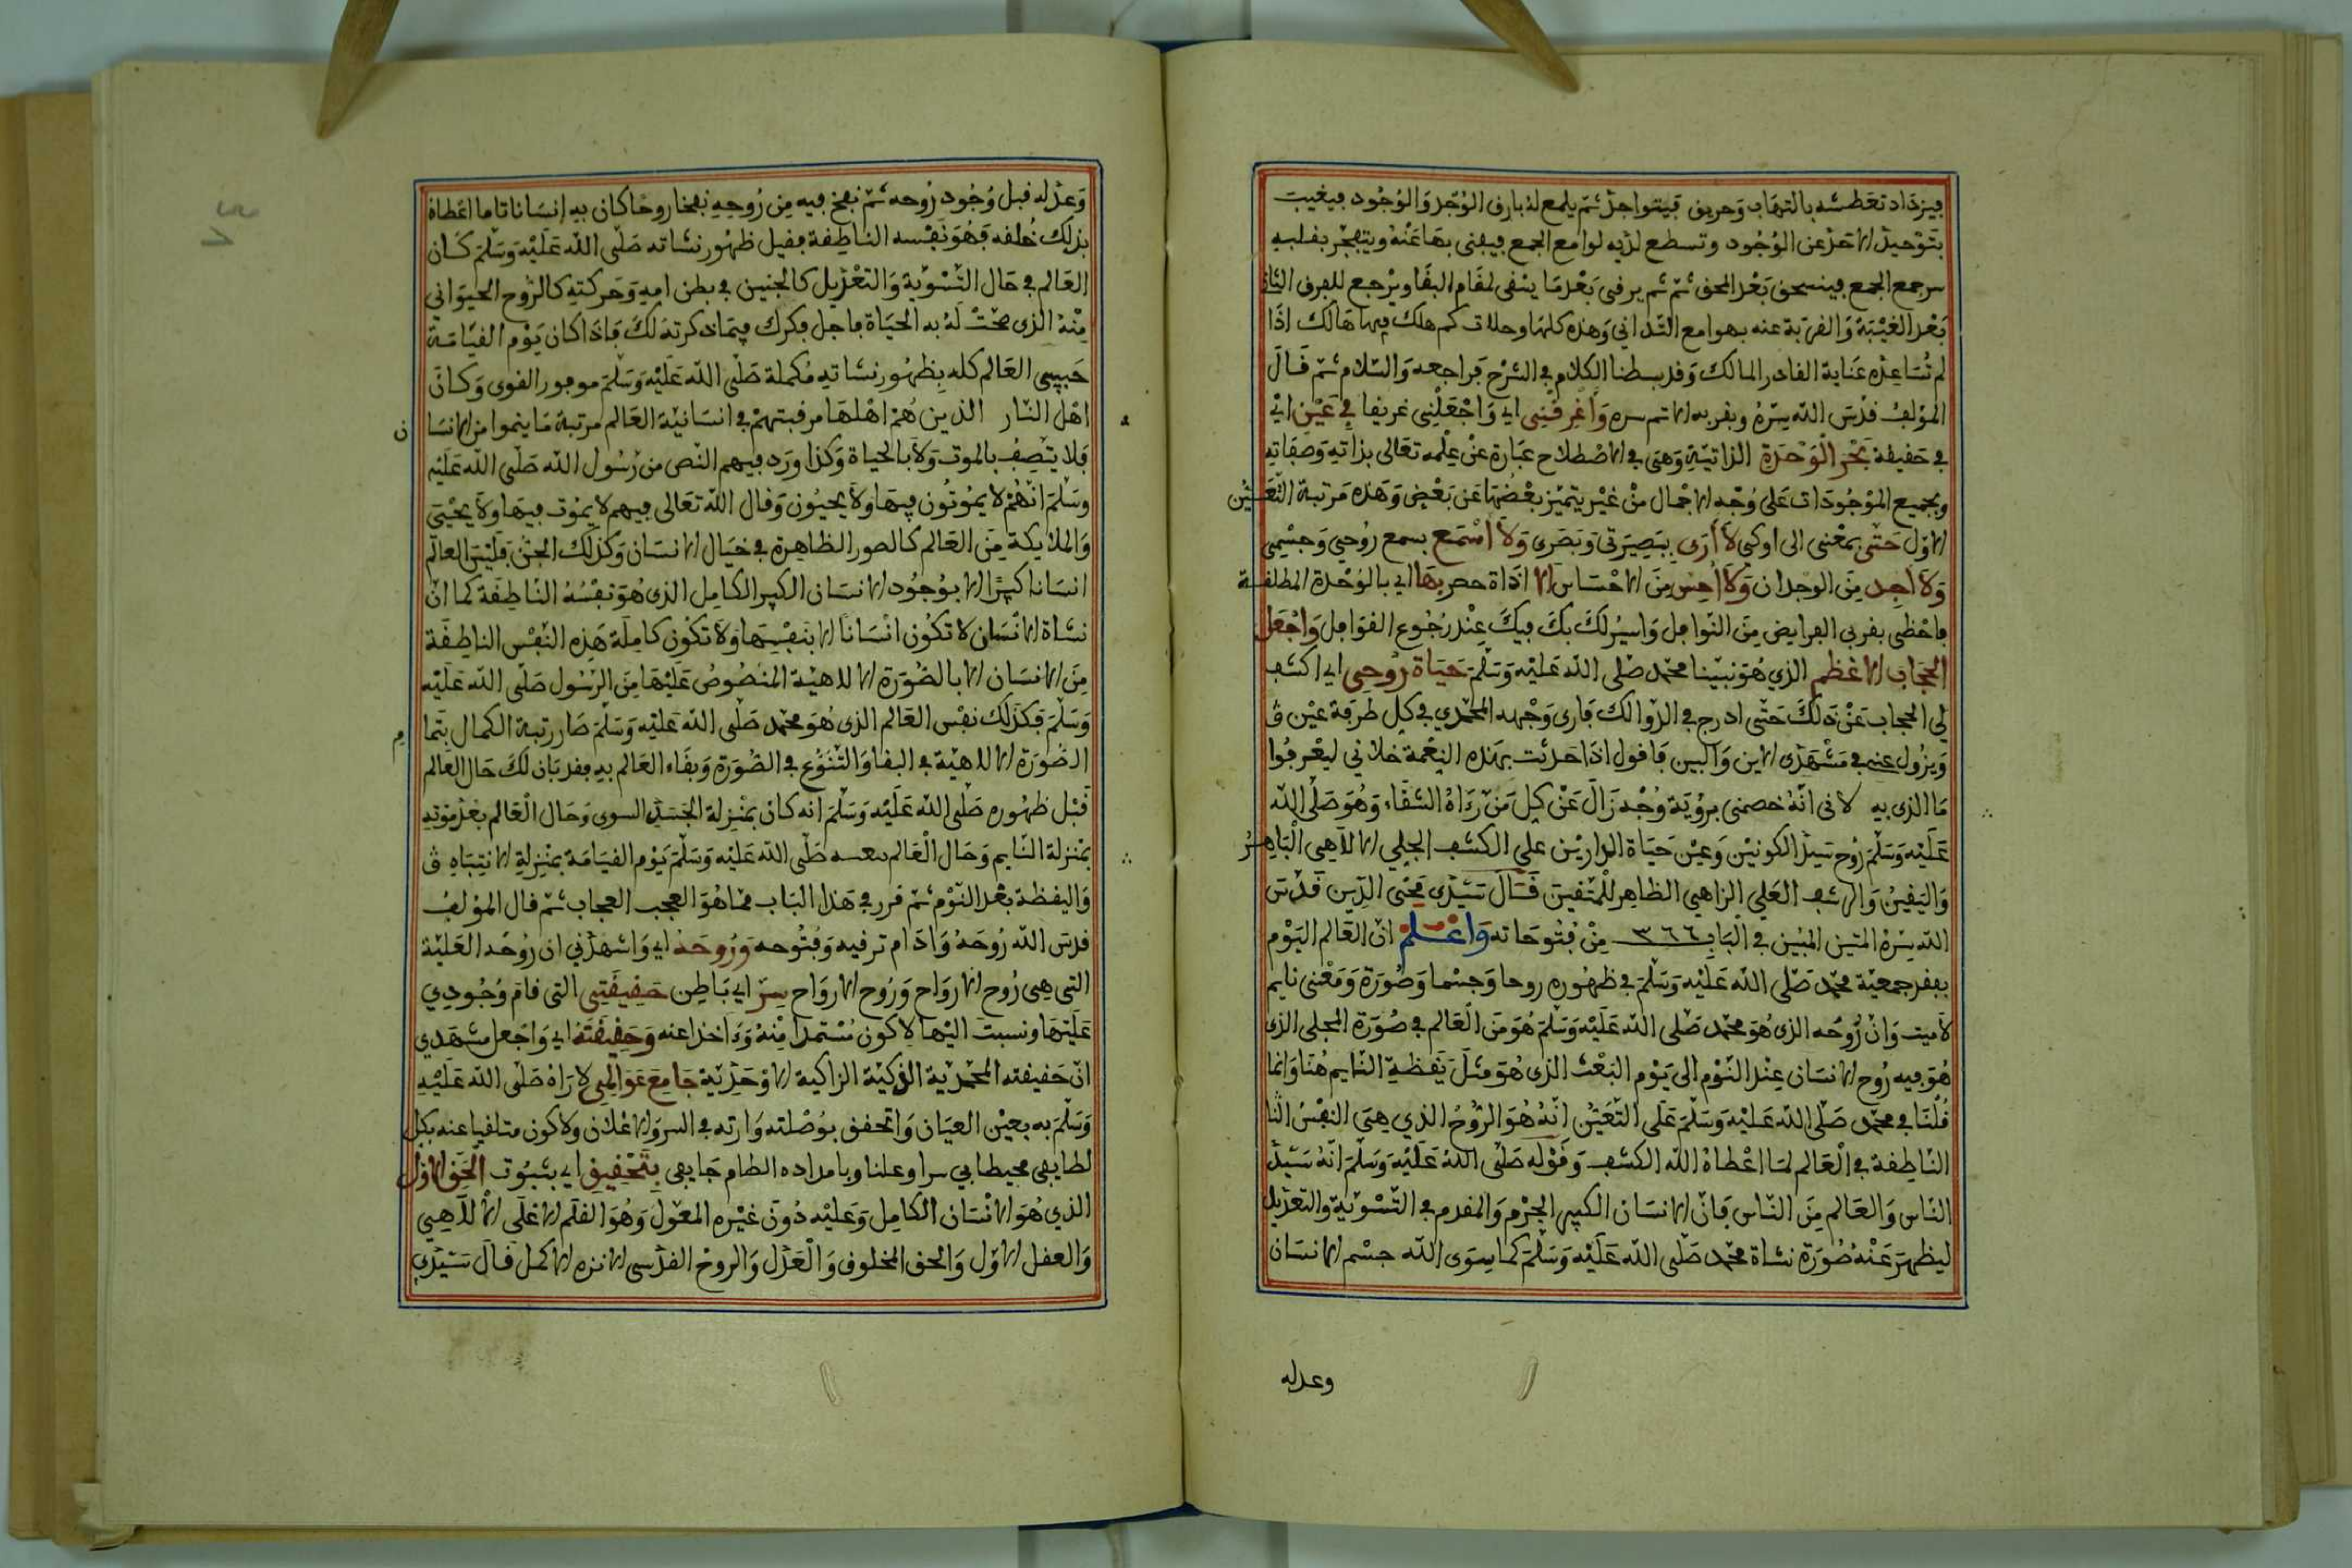 فيزداد تعطشه بالتهاب وحريق فيتواجد ثم يلمع له بارق الوجد والوجود فيغيب
بتوحيد الاحد عن الوجود وتسطع لديه لوامع الجمع فيفنى بها عنه ويتفجر بقلبه
سر جمع الجمع فينسحق بعد المحق ثم ثم يرقى بعد ما ينفى لمقام البقا ويرجع للفرق الثان
بعد الغيبة والغربة عنه بهوامع التداني وهذه كلها وحلات كم هلك فيها هالك اذا
لم تساعده عناية القادر المالك وقد بسطنا الكلام في الشرح فراجعه والسلام ثم قال
المؤلف قدس الله سره وبقربه الاتم سره وأغرقني اي واجعلني غريقا في عين اي
في حقيقة بحر الوحدة الذاتية وهي في الاصطلاح عبارة عن علمه تعالى بذاته وصفاته
وبجميع الموجودات على وجه الاجمال من غير يتميز بعضها عن بعض وهذه مرتبة التعين
الاول حتى بمعنى الى او كي لا أرى ببصيرتي وبصري ولا أسمع بسمع روحي وجسمي
ولا أجد من الوجدان ولا أحس من الاحساس الا اداة حصر بها اي بالوحدة المطلقة
فاحظى بقربي الفرايض من النوافل واسير لك بك فيك عند رجوع القوافل واجعل
الحجاب الاعظم الذي هو نبينا محمد صلى الله عليه وسلم حياة روحي اي اكشف
لي الحجاب عن ذلك حتى ادرج في الذوالك فارى وجهه المحمدي في كل طرفة عين ق
ويزول عنه في مشهدي الاين والبين فاقول اذا حدثت بهذه النعمة خلاني ليعرفوا
ما الذي به لاني انه خصني برؤية وجه زال عن كل من رءاه الشقاء وهو صلى الله
عليه وسلم روح سيد الكونين وعين حياة الدارين على الكشف الجلي الالاهي الباهر
واليقين والرشف العلي الزاهي الظاهر للمتقين قال سيدي محيى الدين قدس
الله سره المتين المبين في الباب ٣٦٦ من فتوحاته واعلم ان العالم اليوم
بفقر جمعية محمد صلى الله عليه وسلم في ظهوره روحا وجسما وصورة ومعنى نايم
لا ميت وان روحه الذي هو محمد صلى الله عليه وسلم هو من العالم في صورة المحلى الذي
هو فيه روح الانسان عند النوم الى يوم البعث الذي هو مثل يقظة النايم هنا وانما
قلنا في محمد صلى الله عليه وسلم على التعين انه هو الروح الذي هي النفس النا
الناطقة في العالم لما اعطاه الله الكشف وقوله صلى الله عليه وسلم انه سيد
الناس والعالم من الناس فان الانسان الكبير الجرم والمقدم في التسوية والتعديل
ليظهر عنه صورة نشاة محمد صلى الله عليه وسلم كما سوى الله جسم الانسان
وعدله
وعدله قبل وجود روحه ثم نفخ فيه من روحه نفخا روحا كان به إنسانا تاما اعطاه
بذلك خلقه فهو نفسه الناطقة فقبل ظهور نشاته صلى الله عليه وسلم كان
العالم في حال التسوية والتعديل كالجنين في بطن امه وحركته كالروح الحيواني
منه الذي صحت له به الحياة فاجل فكرك فيما ذكرته لك فاذا كان يوم القيامة
حيي العالم كله بظهور نشاته مكملة صلى الله عليه وسلم موفور القوى وكان
اهل النار الذين هم اهلها مرقبتهم في انسانية العالم مرتبة ما ينموا من الانسا
ن
فلا يتصف بالموت ولا بالحياة وكذا ورد فيهم النص من رسول الله صلى الله عليه
وسلم انهم لا يموتون فيها ولا يحيون وقال الله تعالى فيهم لا يموت فيها ولا يحيى
والملايكة من العالم كالصور الظاهرة في خيال الانسان وكذلك الجن فليس العالم
انسانا كبيرا الا بوجود الانسان الكبير الكامل الذي هو نفسه الناطقة كما ان
نشاة الانسان لا تكون انسانا الا بنفسها ولا تكون كاملة هذه النفس الناطقة
من الانسان الا بالصورة الالاهية المنصوص عليها من الرسول صلى الله عليه
وسلم فكذلك نفس العالم الذي هو محمد صلى الله عليه وسلم حاز رتبة الكمال بتما
م
الصورة الالاهية في البقا والتنوع في الصورة وبقاء العالم به فقد بان لك حال العالم
قبل ظهوره صلى الله عليه وسلم انه كان بمنزلة الجسد السوي وحال العالم بعد موته
بمنزلة النايم وحال العالم صلى الله عليه وسلم يوم القيامة بمنزلة الانتباه ق
واليقظة بعد النوم ثم قرر في هذا الباب مما هو العجب العجاب ثم قال المؤلف
قدس الله روحه وادام ترقيه وفتوحه وروحه اي واشهدني ان روحه العلية
التي هي روح الارواح وروح الارواح سر اي باطن حقيقتي التي قام وجودي
عليها ونسبت اليها لاكون مستمدا منه وءاخذا عنه وحقيقته اي واجعل مشهدي
ان حقيقته المحمدية الذكية الزاكية الاوحدية جامع عوالمي لاراه صلى الله عليه
وسلم به بعين العيان واتحقق بوصلته وارته في السر والاعلان ولاكون متلقيا عنه بكل
لطايفي محيطا بي سرا وعلنا وبامداده الطام جايفي بتحقيق اي بثبوت الحق الاول
الذي هو الانسان الكامل وعليه دون غيره المعول وهو القلم الاعلى الالاهي
والعقل الاول والحق المخلوق والعدل والروح القدسي الانزه الاكمل قال سيدي